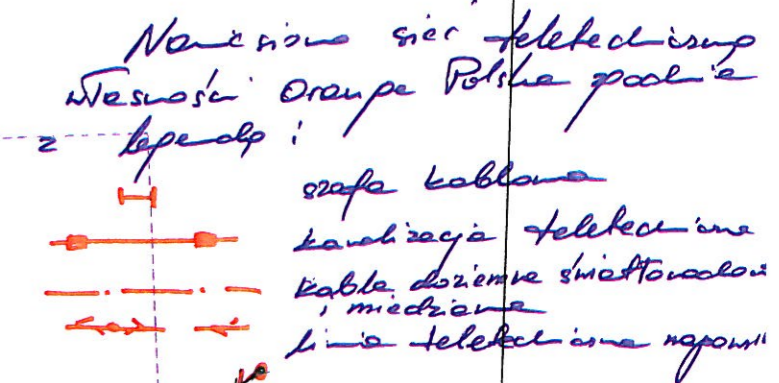 Naniesiono sieć teletechniczną
własności Orange Polska zgodnie
z legendą:
szafa kablowa
kanalizacja teletechniczna
kable doziemne światłowodowe
i miedziane
linia teletechniczna